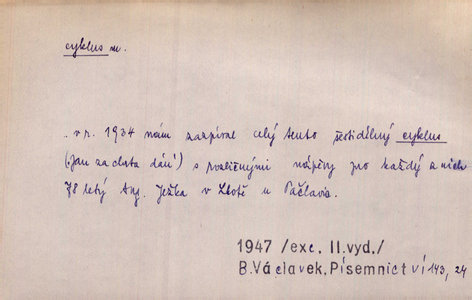 cyklus m.
. v r. 1934 nám zazpíval celý tento šestidílný cyklus
(„Jan za chrta dán“) s rozličnými nápěvy pro každý a nich
78 letý Ang. Ježka v Lhotě u Pačlavic.
1947 /exc, II.vyd./
B.Václavek,Písemnictví 143, 24